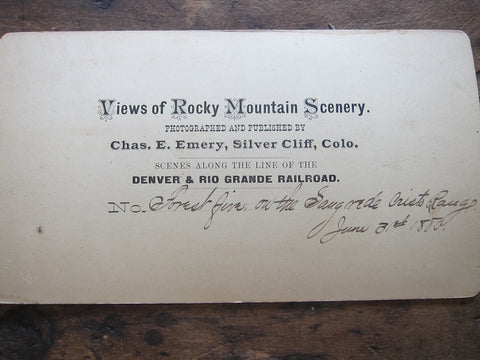 Views of Rocky Mountain Scenery.
PHOTOGRAPHED AND PUBLISHED BY
Chas. E. Emery, Silver Cliff, Colo.
SCENES ALONG THE LINE OF THE
DENVER & RIO GRANDE RAILROAD.
No. Forest fire, on the Sangrede Cristo Range
June 3.d 1880.